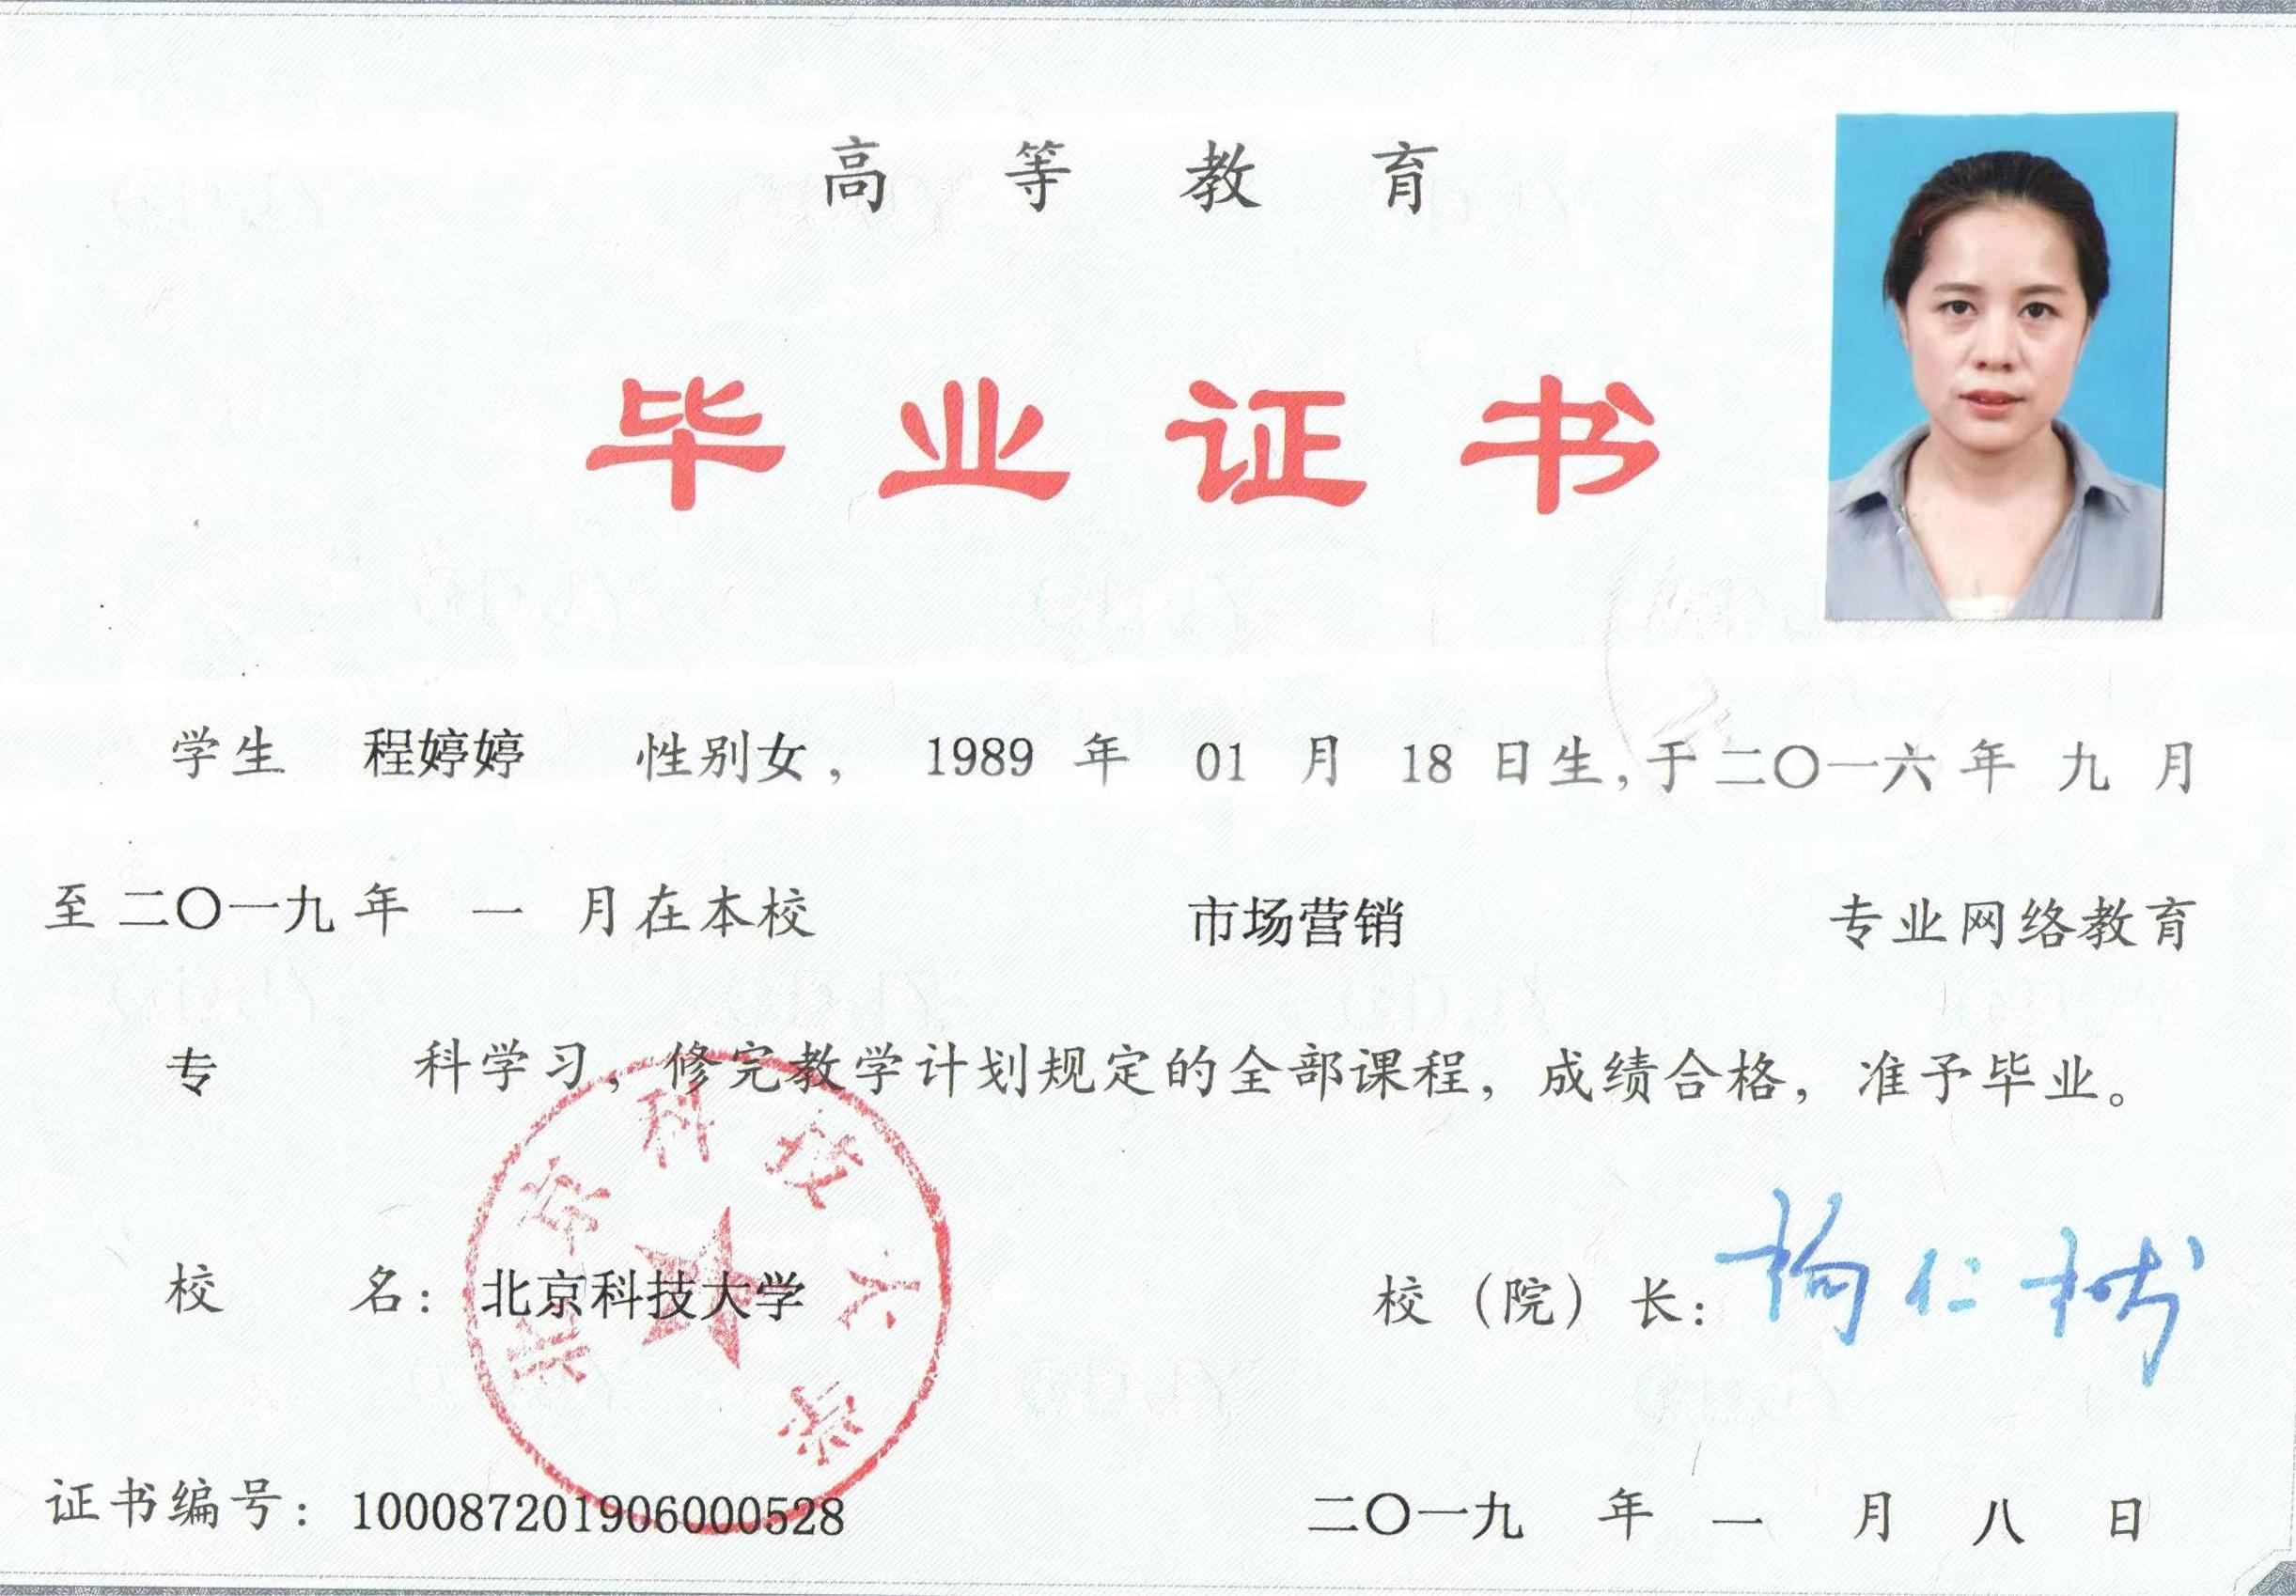 高等教育
毕业证书
学生 程婷婷 性别女， 1989 年 01 月 18 日生，于二〇一六年 九 月
至二〇一九年 一 月在本校 市场营销 专业网络教育
专 科学习，修完教学计划规定的全部课程，成绩合格，准予毕业。
北京科技大学
校 名：北京科技大学 校（院）长：杨仁树
证书编号：100087201906000528 二〇一九 年 一 月 八 日